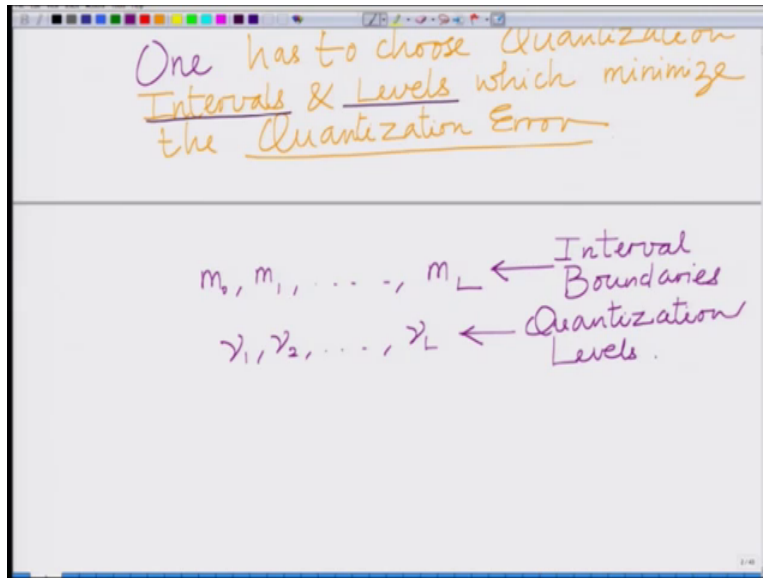 One has to choose Quantization
Intervals & Levels which minimize
the Quantization Error
m₀, m₁, . . . ., m_L ← Interval Boundaries
ν₁, ν₂, . . . ., ν_L ← Quantization Levels.